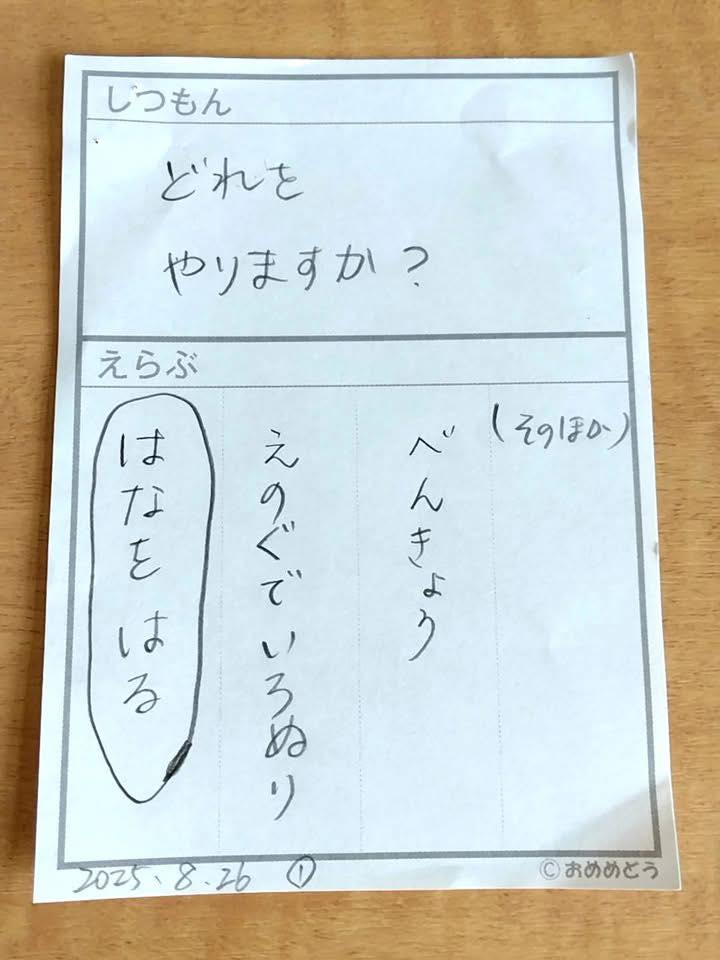 しつもん
どれを
やりますか？
えらぶ
はなを はる
えのぐで いろぬり
べんきょう
(そのほか)
2025.8.26 ①
©おめめどう